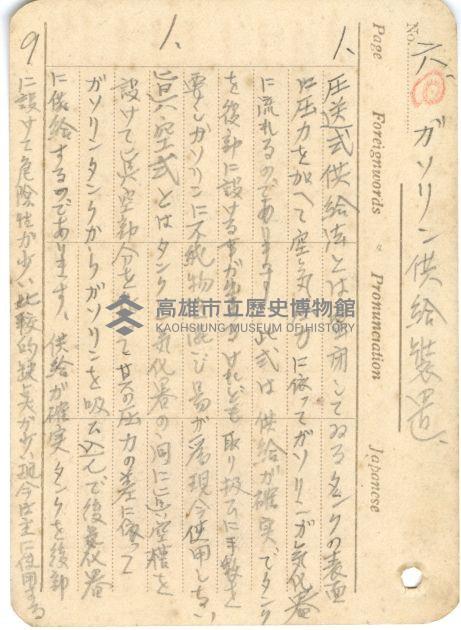 No.
六、ガソリン供給装置、
Page Foreignwords Pronunciation Japanese
1、圧送式供給法とは密閉してゐるタンクの表面
に圧力を加へて空気 力に依ってガソリンが気化器
に流れるのであります、此式は供給が確実でタンク
を後部に設ける事が出 るけれども取り扱ひに手数を
要しガソリンに不純物が混び易が為現今使用しない
1、真空式とはタンク 気化器の間に真空槽を
設けて真空部分を て其の圧力の差に依って
ガソリンタンクからガソリンを吸ひ込んで後気化器
に供給するのであります、供給が確実タンクを後部
に設けて危険性が少い比較的欠点が少い現今は主に使用する
9
高雄市立歷史博物館
KAOHSIUNG MUSEUM OF HISTORY